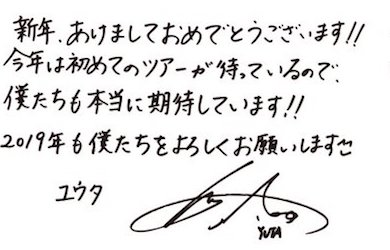 新年、あけましておめでとうございます!!
今年は初めてのツアーが待っているので、
僕たちも本当に期待しています!!
2019年も僕たちをよろしくお願いします
ユウタ
YUTA